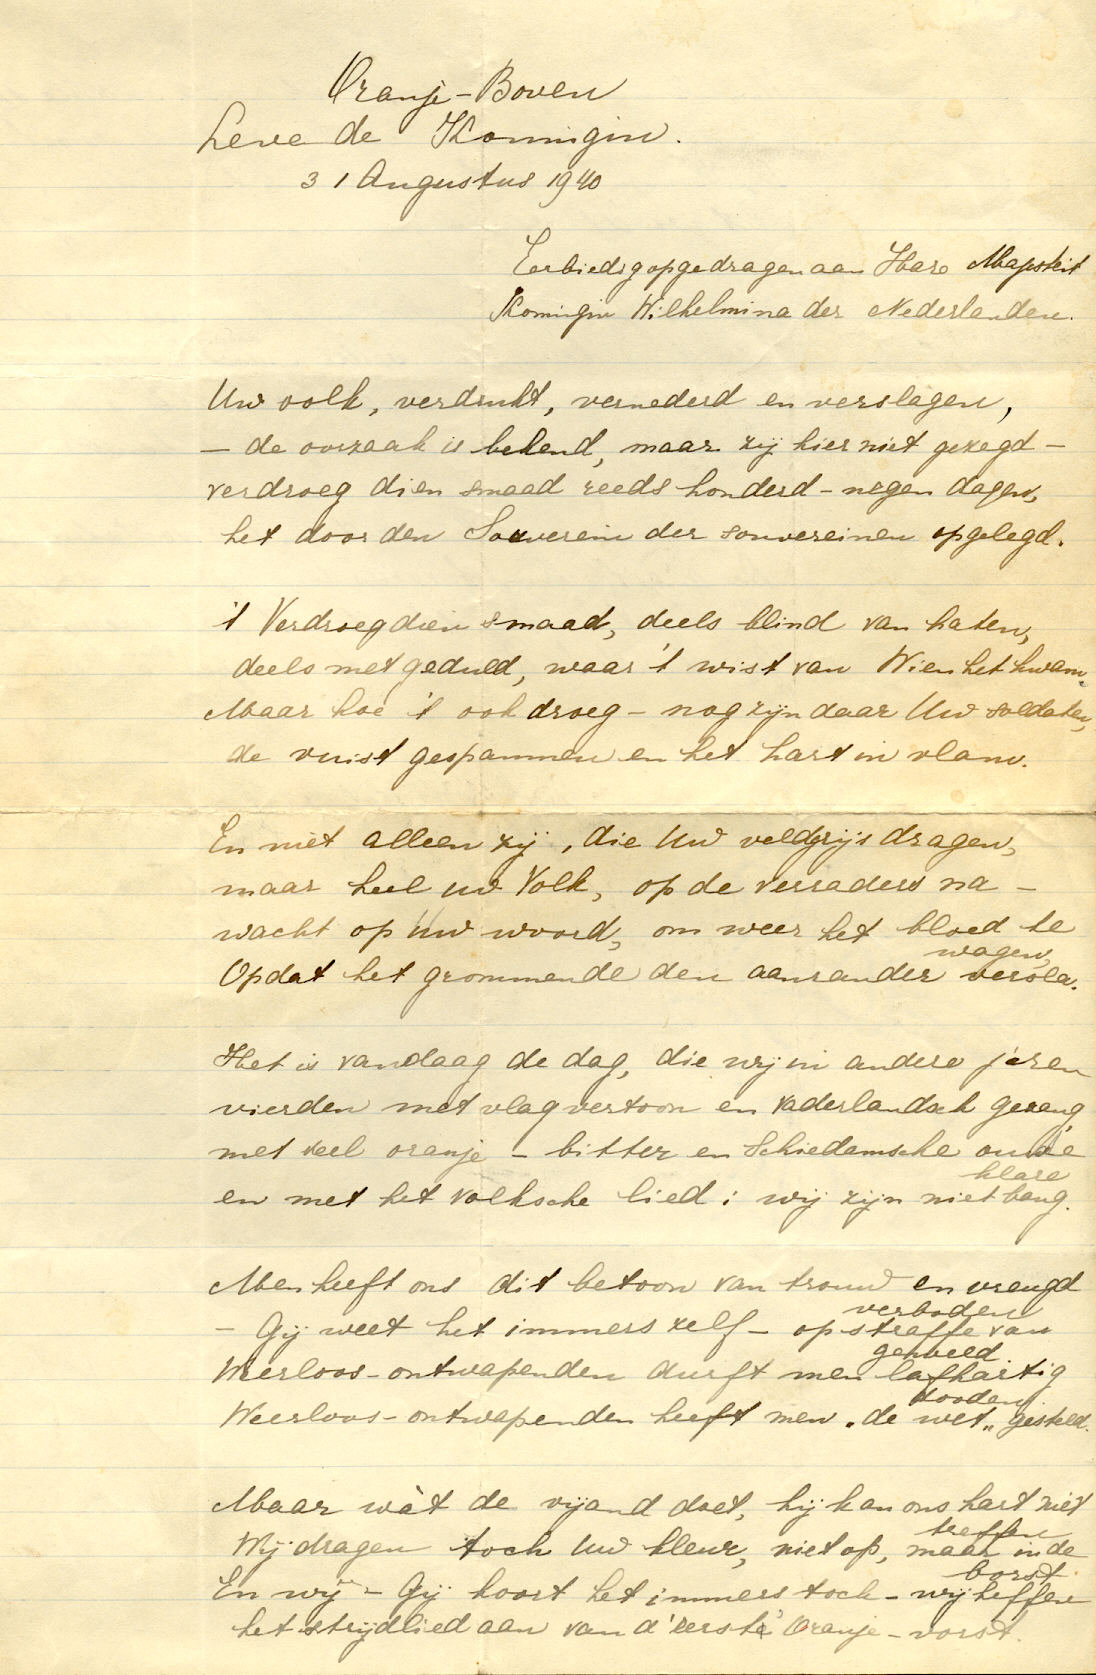 Oranje-Boven
Leve de Koningin.
31 Augustus 1940
Eerbiedig opgedragen aan Hare Majesteit
Koningin Wilhelmina der Nederlanden.
Uw volk, verdrukt, vernederd en verslagen,
— de oorzaak is bekend, maar zij hier niet gezegd —
verdroeg dien smaad reeds honderd-negen dagen,
het door den Souverein der souvereinen opgelegd.
't Verdroeg dien smaad, deels blind van haten,
deels met geduld, waar 't wist van Wien het kwam.
Maar hoe 't ook droeg — nog zijn daar Uw soldaten,
de vuist gespannen en het hart in vlam.
En niet alleen zij, die Uw veldgrijs dragen,
maar heel uw Volk, op de verraders na —
wacht op Uw woord, om weer het bloed te
wagen,
Opdat het grommende den aanrander versla.
Het is vandaag de dag, die wij in andere jaren
vierden met vlagvertoon en vaderlandsch gezang
met veel oranje - bitter en Schiedamsche oude
klare
en met het volksche lied: wij zijn niet bang.
Men heeft ons dit betoon van trouw en vreugd
verboden
— Gij weet het immers zelf — op straffe van
geweld.
Weerloos-ontwapenden durft men lafhartig
dooden
Weerloos-ontwapenden heeft men „de wet„ gesteld.
Maar wàt de vijand doet, hij kan ons hart niet
treffen
Wij dragen toch Uw kleur, niet op, maar in de
borst.
En wij — Gij hoort het immers toch — wij heffen
het strijdlied aan van d'eerste Oranje-vorst.